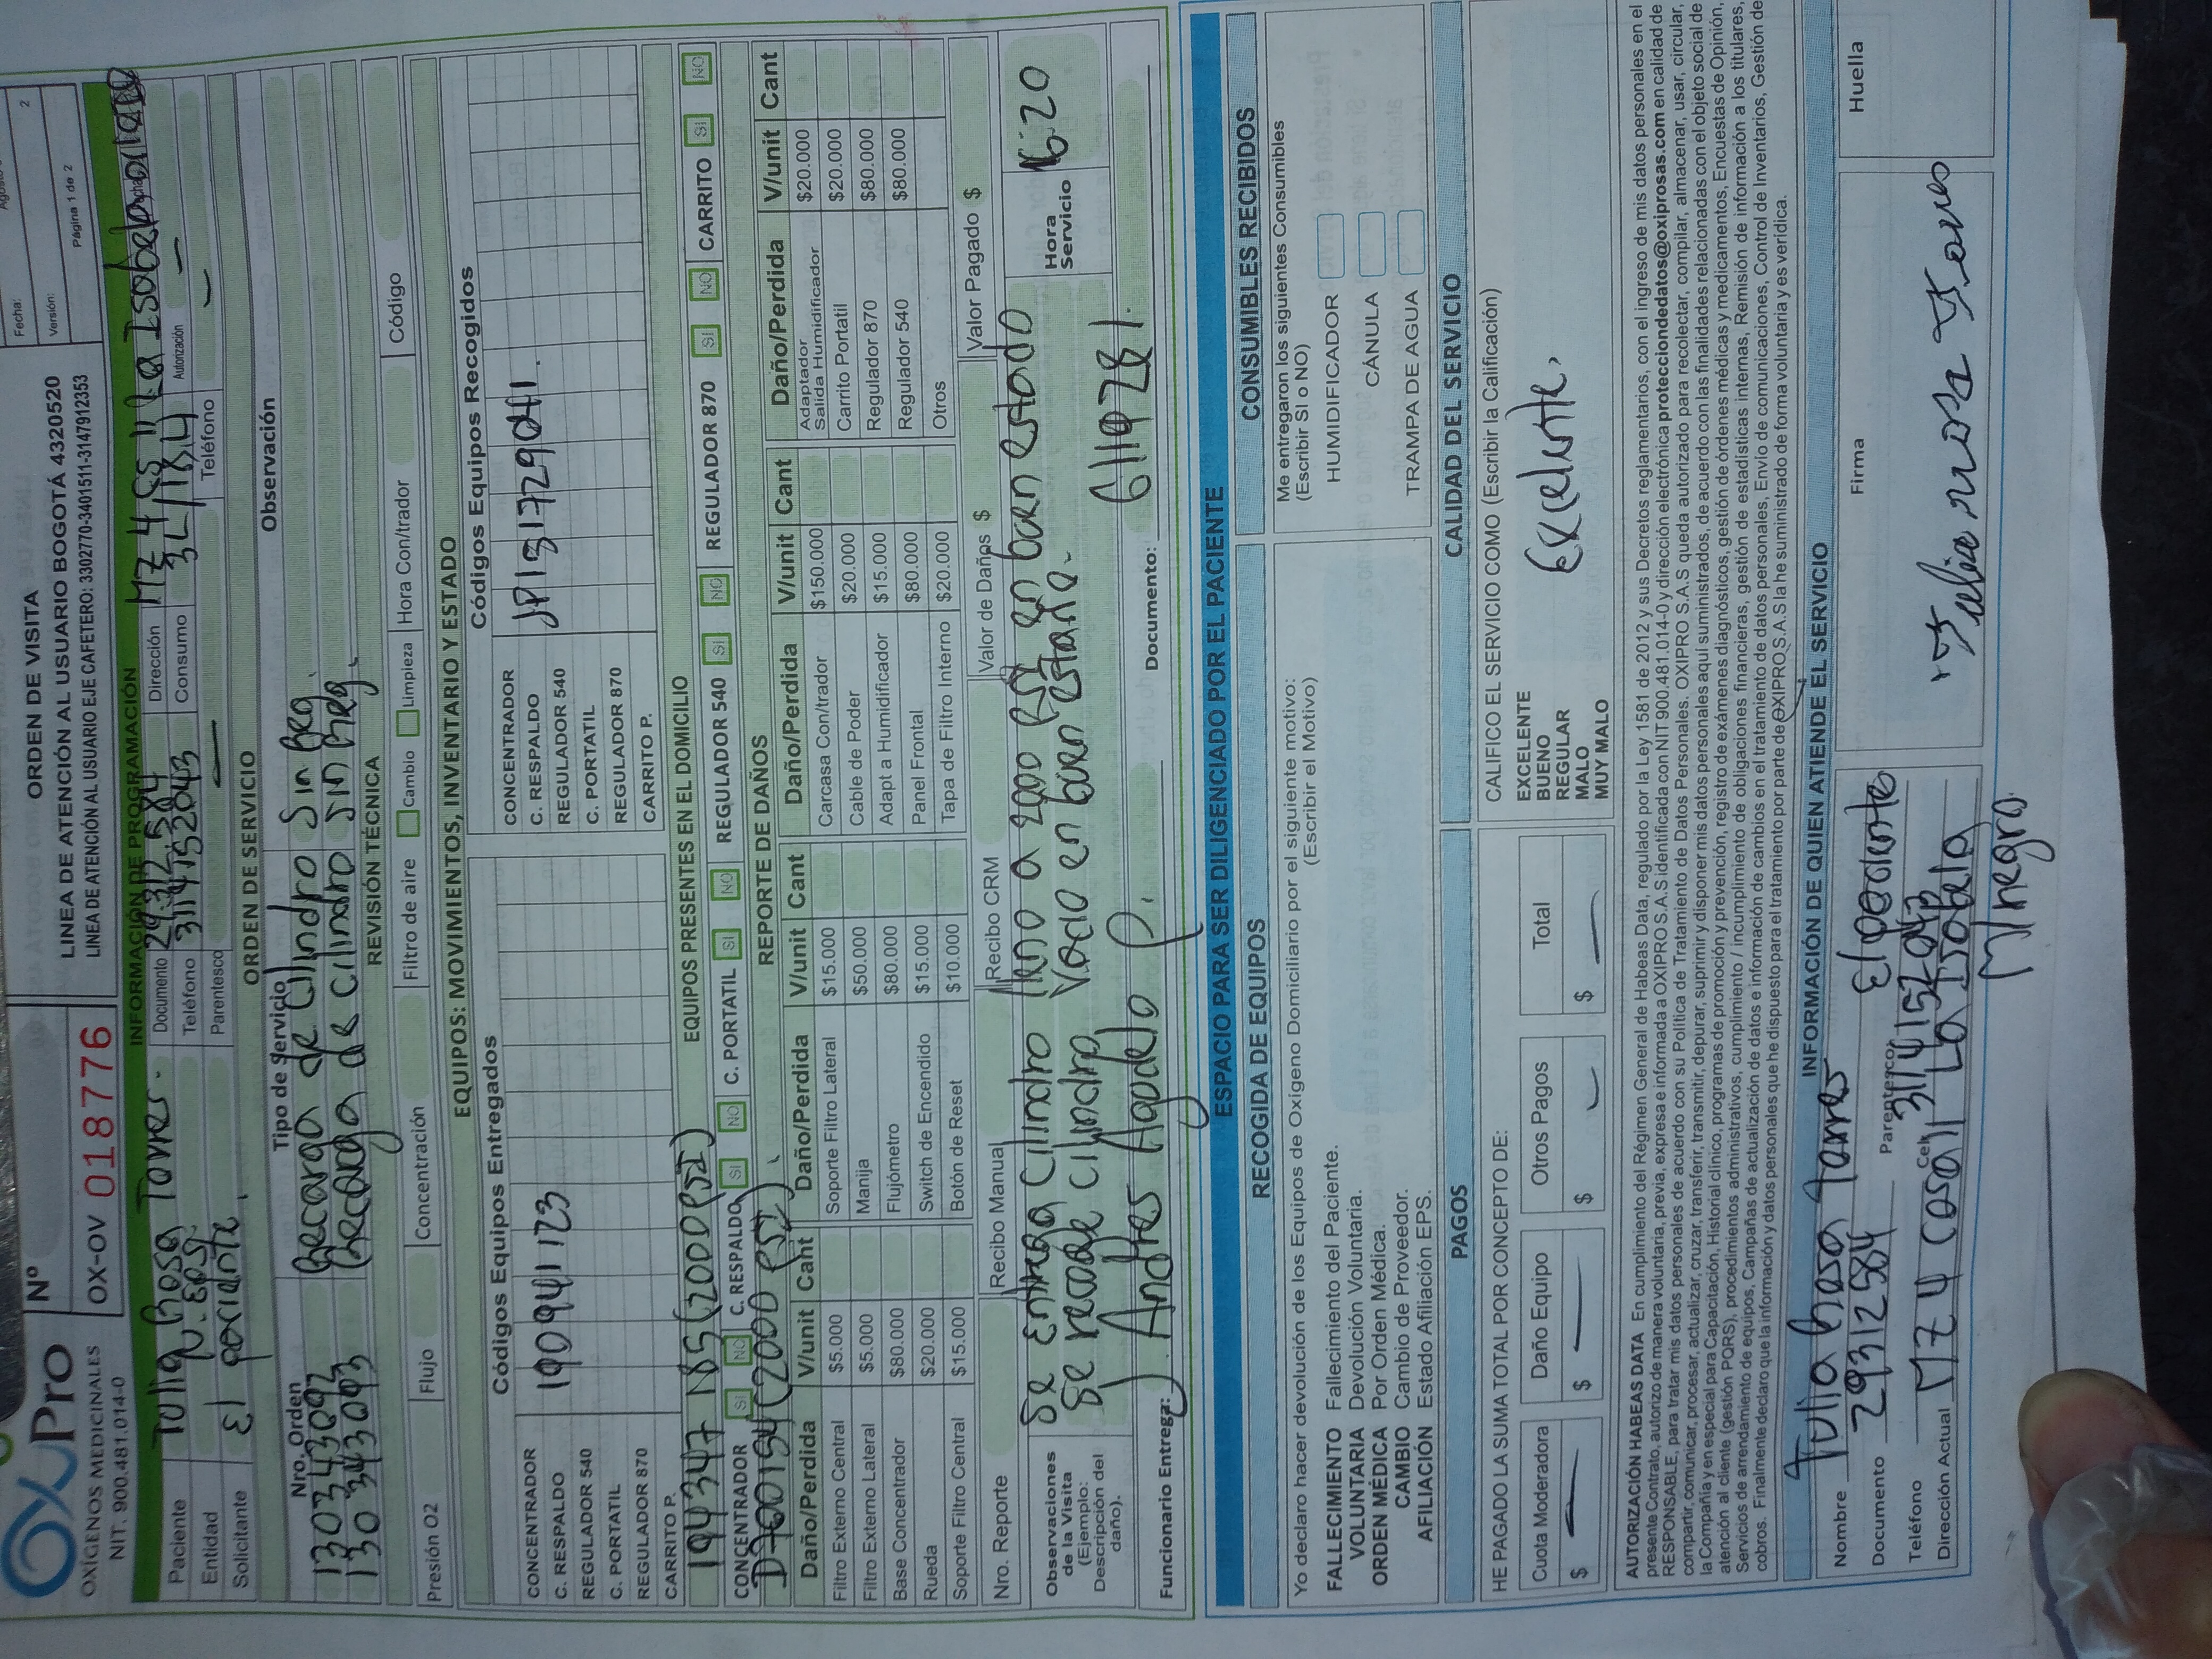 OxyPro
OXÍGENOS MEDICINALES
NIT. 900.481.014-0
Nº
OX-OV 018776
ORDEN DE VISITA
LINEA DE ATENCIÓN AL USUARIO BOGOTÁ 4320520
LINEA DE ATENCIÓN AL USUARIO EJE CAFETERO: 3302770-3401511-3147912353
Fecha:
Versión: 2
Página 1 de 2
INFORMACIÓN DE PROGRAMACIÓN
Paciente Tulia Rosa Torres. Documento 29.312.584 Dirección MZ 4 CS 11 La Isabela
Entidad N. EPS. Teléfono 3114152043 Consumo 3L/18H Autorización
Solicitante El paciente. Parentesco — Teléfono
ORDEN DE SERVICIO
Nro. Orden Tipo de Servicio Observación
130343093 Recarga de Cilindro Sin Reg.
130343093 Recarga de Cilindro Sin Reg.
REVISIÓN TÉCNICA
Presión O2 Flujo Concentración Filtro de aire Cambio Limpieza Hora Con/trador Código
EQUIPOS: MOVIMIENTOS, INVENTARIO Y ESTADO
Códigos Equipos Entregados Códigos Equipos Recogidos
CONCENTRADOR CONCENTRADOR
C. RESPALDO 190941123 C. RESPALDO
REGULADOR 540 REGULADOR 540
C. PORTATIL C. PORTATIL
REGULADOR 870 REGULADOR 870
CARRITO P. CARRITO P.
EQUIPOS PRESENTES EN EL DOMICILIO
CONCENTRADOR SI NO C. RESPALDO SI NO C. PORTATIL SI NO REGULADOR 540 SI NO REGULADOR 870 SI NO CARRITO SI NO
REPORTE DE DAÑOS
Daño/Perdida V/unit Cant Daño/Perdida V/unit Cant Daño/Perdida V/unit Cant Daño/Perdida V/unit Cant
Filtro Externo Central $5.000 Soporte Filtro Lateral $15.000 Carcasa Con/trador $150.000 Adaptador Salida Humidificador $20.000
Filtro Externo Lateral $5.000 Manija $50.000 Cable de Poder $20.000 Carrito Portatil $20.000
Base Concentrador $80.000 Flujómetro $80.000 Adapt a Humidificador $15.000 Regulador 870 $80.000
Rueda $20.000 Switch de Encendido $15.000 Panel Frontal $80.000 Regulador 540 $80.000
Soporte Filtro Central $15.000 Botón de Reset $10.000 Tapa de Filtro Interno $20.000 Otros
Nro. Reporte Recibo Manual Recibo CRM Valor de Daños $ Valor Pagado $
Observaciones de la Visita (Ejemplo: Descripción del daño).
Se entrega Cilindro lleno a 2000 PSI en buen estado
Se recoge cilindro Vacio en buen estado.
Hora Servicio 16:20
Funcionario Entrega: Andres Agudelo P. Documento: 6119281.
ESPACIO PARA SER DILIGENCIADO POR EL PACIENTE
RECOGIDA DE EQUIPOS
Yo declaro hacer devolución de los Equipos de Oxígeno Domiciliario por el siguiente motivo:
(Escribir el Motivo)
FALLECIMIENTO Fallecimiento del Paciente.
VOLUNTARIA Devolución Voluntaria.
ORDEN MÉDICA Por Orden Médica.
CAMBIO Cambio de Proveedor.
AFILIACIÓN Estado Afiliación EPS.
CONSUMIBLES RECIBIDOS
Me entregaron los siguientes Consumibles
(Escribir SI o NO)
HUMIDIFICADOR
CÁNULA
TRAMPA DE AGUA
PAGOS
HE PAGADO LA SUMA TOTAL POR CONCEPTO DE:
Cuota Moderadora Daño Equipo Otros Pagos Total
$ — $ — $ — $ —
CALIDAD DEL SERVICIO
CALIFICO EL SERVICIO COMO (Escribir la Calificación)
EXCELENTE
BUENO
REGULAR
MALO
MUY MALO
Excelente,
AUTORIZACIÓN HABEAS DATA En cumplimiento del Régimen General de Habeas Data, regulado por la Ley 1581 de 2012 y sus Decretos reglamentarios, con el ingreso de mis datos personales en el
presente Contrato, autorizo de manera voluntaria, previa, expresa e informada a OXIPRO S.A.S identificada con NIT 900.481.014-0 y dirección electrónica protecciondedatos@oxiprosas.com en calidad de
RESPONSABLE, para tratar mis datos personales de acuerdo con su Política de Tratamiento de Datos Personales. OXIPRO S.A.S queda autorizado para recolectar, compilar, almacenar, usar, circular,
compartir, comunicar, procesar, actualizar, cruzar, transferir, transmitir, depurar, suprimir y disponer mis datos personales aquí suministrados, de acuerdo con las finalidades relacionadas con el objeto social de
la Compañía y en especial para Capacitación, Historial clínico, programas de promoción y prevención, registro de exámenes diagnósticos, gestión de órdenes médicas y medicamentos, Encuestas de Opinión,
atención al cliente (gestión PQRS), procedimientos administrativos, cumplimiento / incumplimiento de obligaciones financieras, gestión de estadísticas internas, Remisión de información a los titulares,
Servicios de arrendamiento de equipos, Campañas de actualización de datos e información de cambios en el tratamiento de datos personales, Envío de comunicaciones, Control de Inventarios, Gestión de
cobros. Finalmente declaro que la información y datos personales que he dispuesto para el tratamiento por parte de OXIPRO S.A.S la he suministrado de forma voluntaria y es verídica.
INFORMACIÓN DE QUIEN ATIENDE EL SERVICIO
Nombre Tulia Rosa Torres
Documento 29312584 Parentesco El paciente
Teléfono Cel 3114152043
Dirección Actual MZ 4 casa 11 La Isabela
M/negro.
Firma
Huella